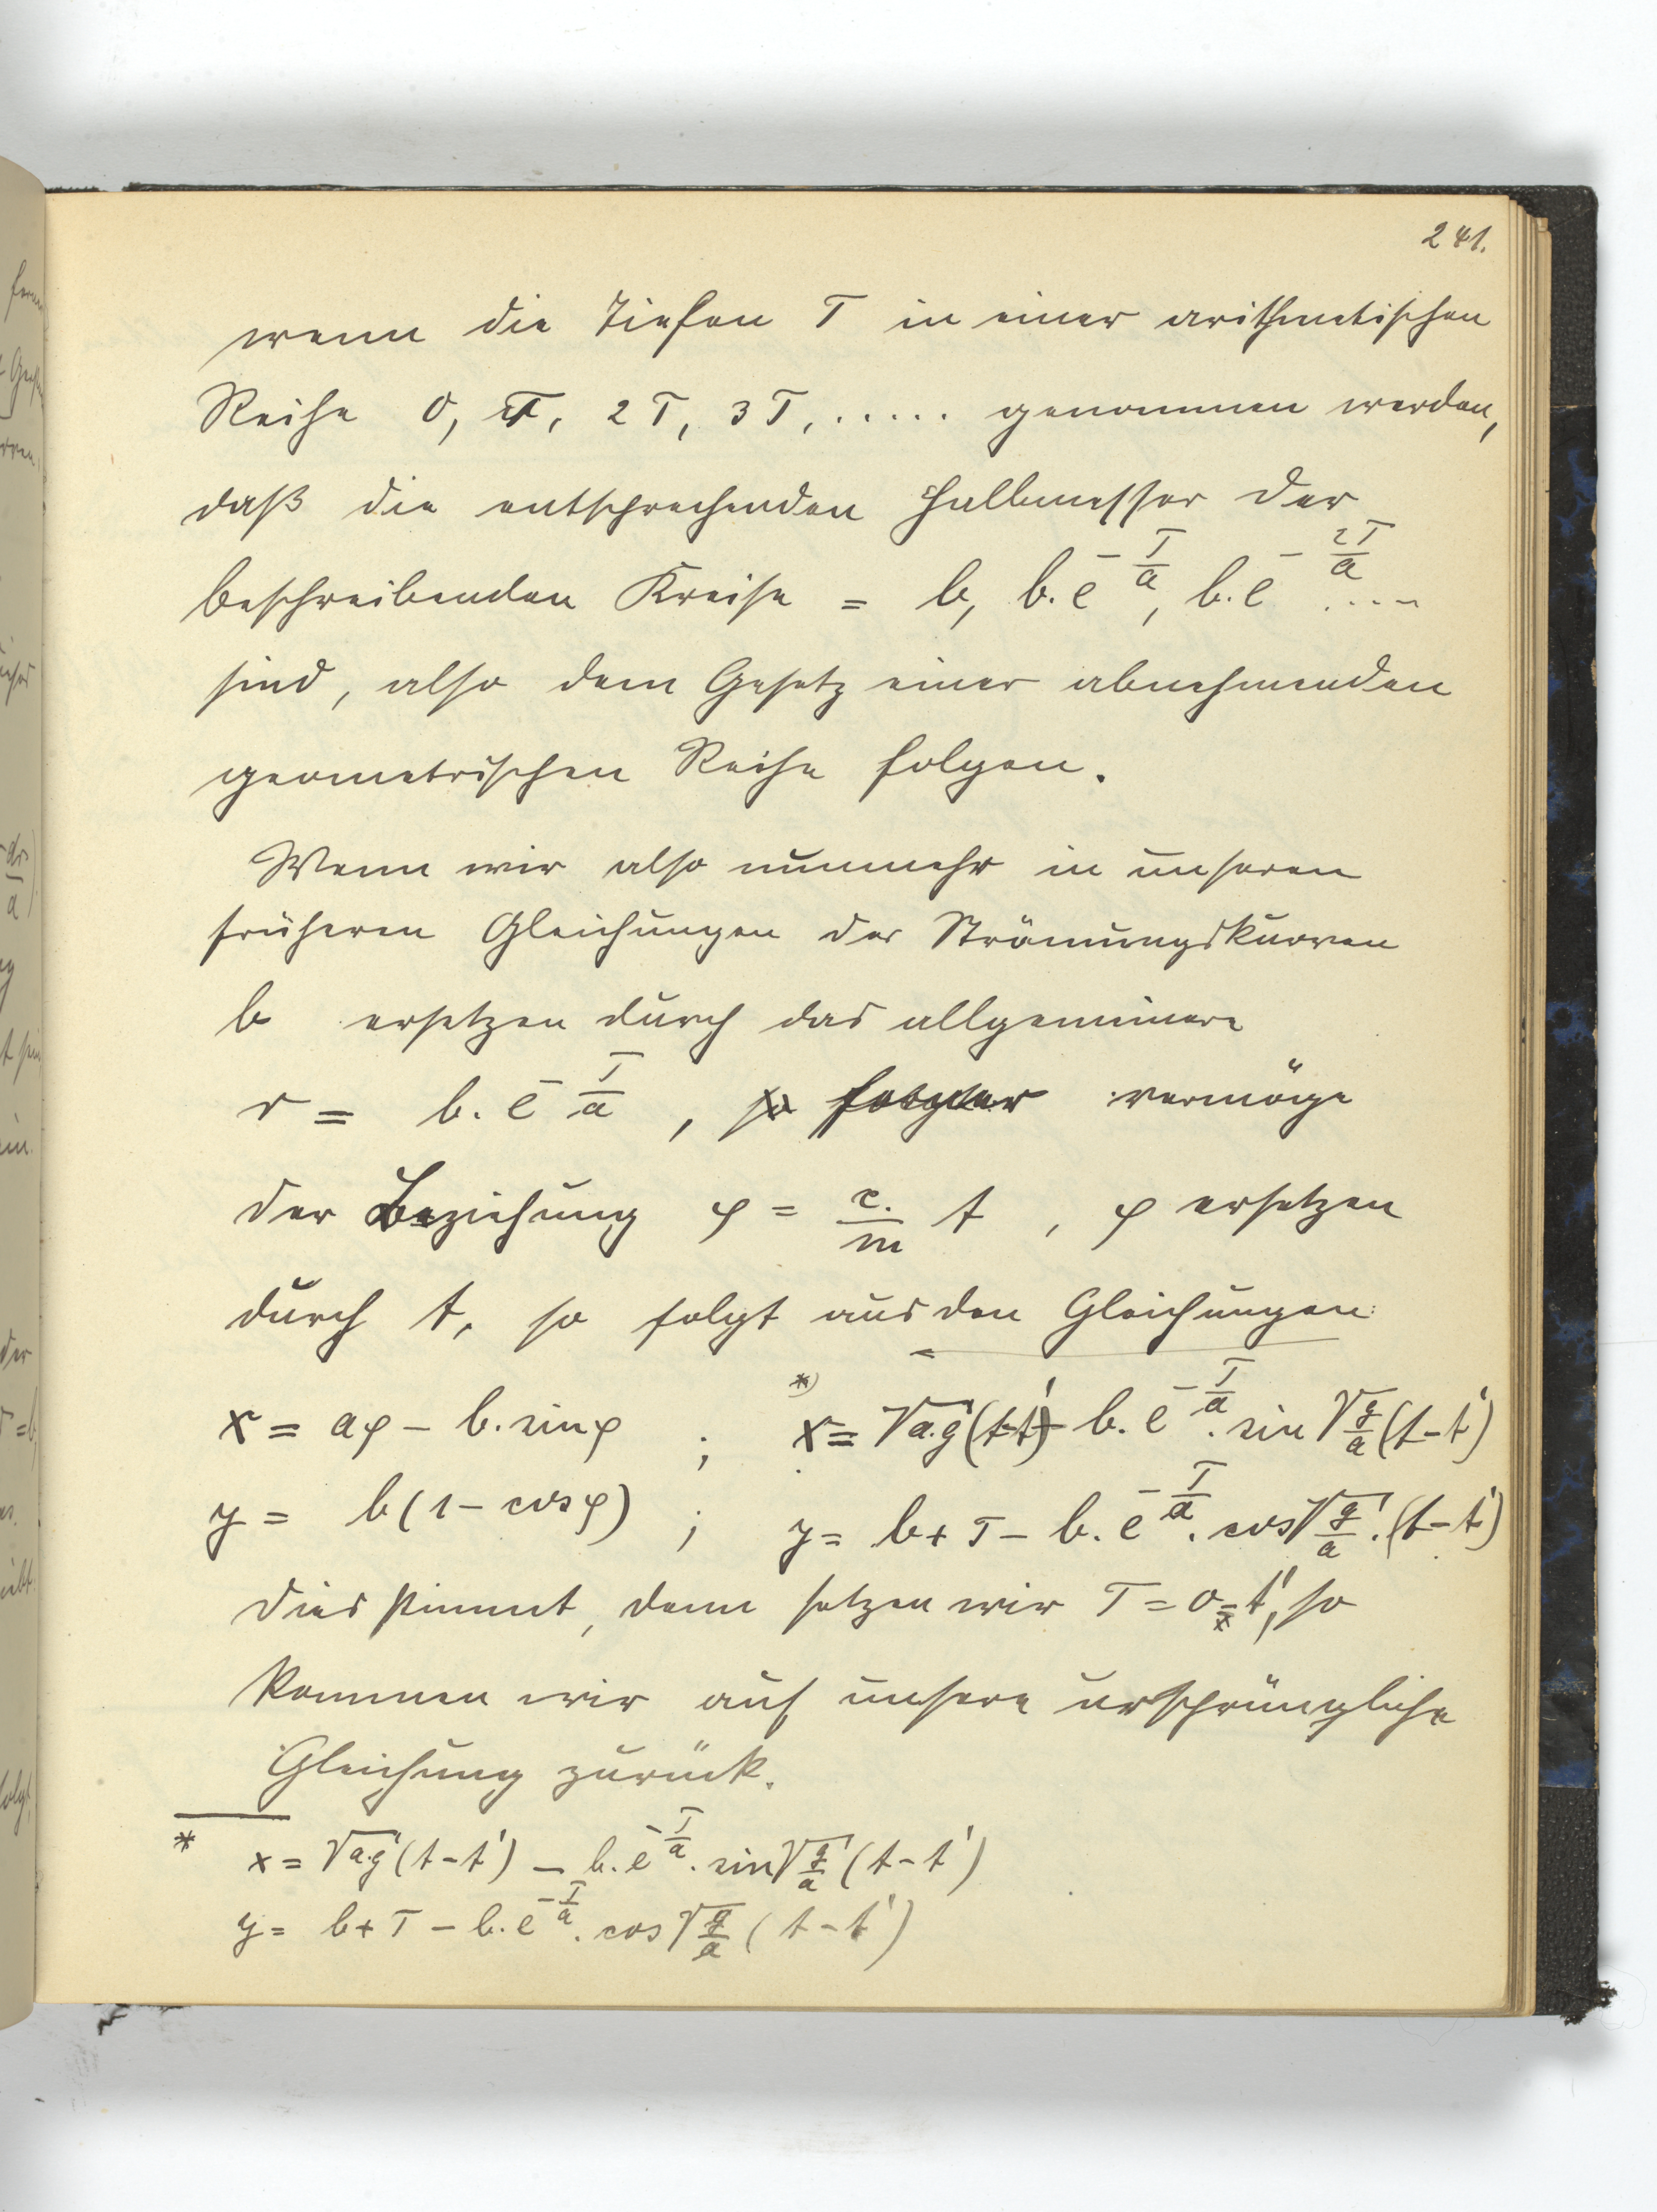 241.
wenn die Tiefen T in einer arithmetischen
Reihe 0, T, 2T, 3T, ..... genommen werden,
daß die entsprechenden Halbmesser der
beschreibenden Kreise = b, b.e^{-T/a}, b.e^{-2T/a} ....
sind, also dem Gesetz einer abnehmenden
geometrischen Reihe folgen.
Wenn wir also nunmehr in unseren
früheren Gleichungen der Strömungskurven
b ersetzen durch das allgemeinere
r = b.e^{-T/a}, ferner vermöge
der Beziehung φ = c/m t, φ ersetzen
durch t, so folgt aus den Gleichungen:
x = aφ - b.sinφ ; *) x = √a.g (t-t') - b.e^{-T/a}. sin √g/a (t-t')
y = b(1-cosφ) ; y = b + T - b.e^{-T/a}. cos √g/a .(t-t')
dies stimmt, denn setzen wir T = 0 = t', so
kommen wir auf unsere ursprüngliche
Gleichung zurück.
* x = √a.g (t-t') - b.e^{-T/a}. sin √g/a (t-t')
y = b + T - b.e^{-T/a}. cos √g/a (t-t')